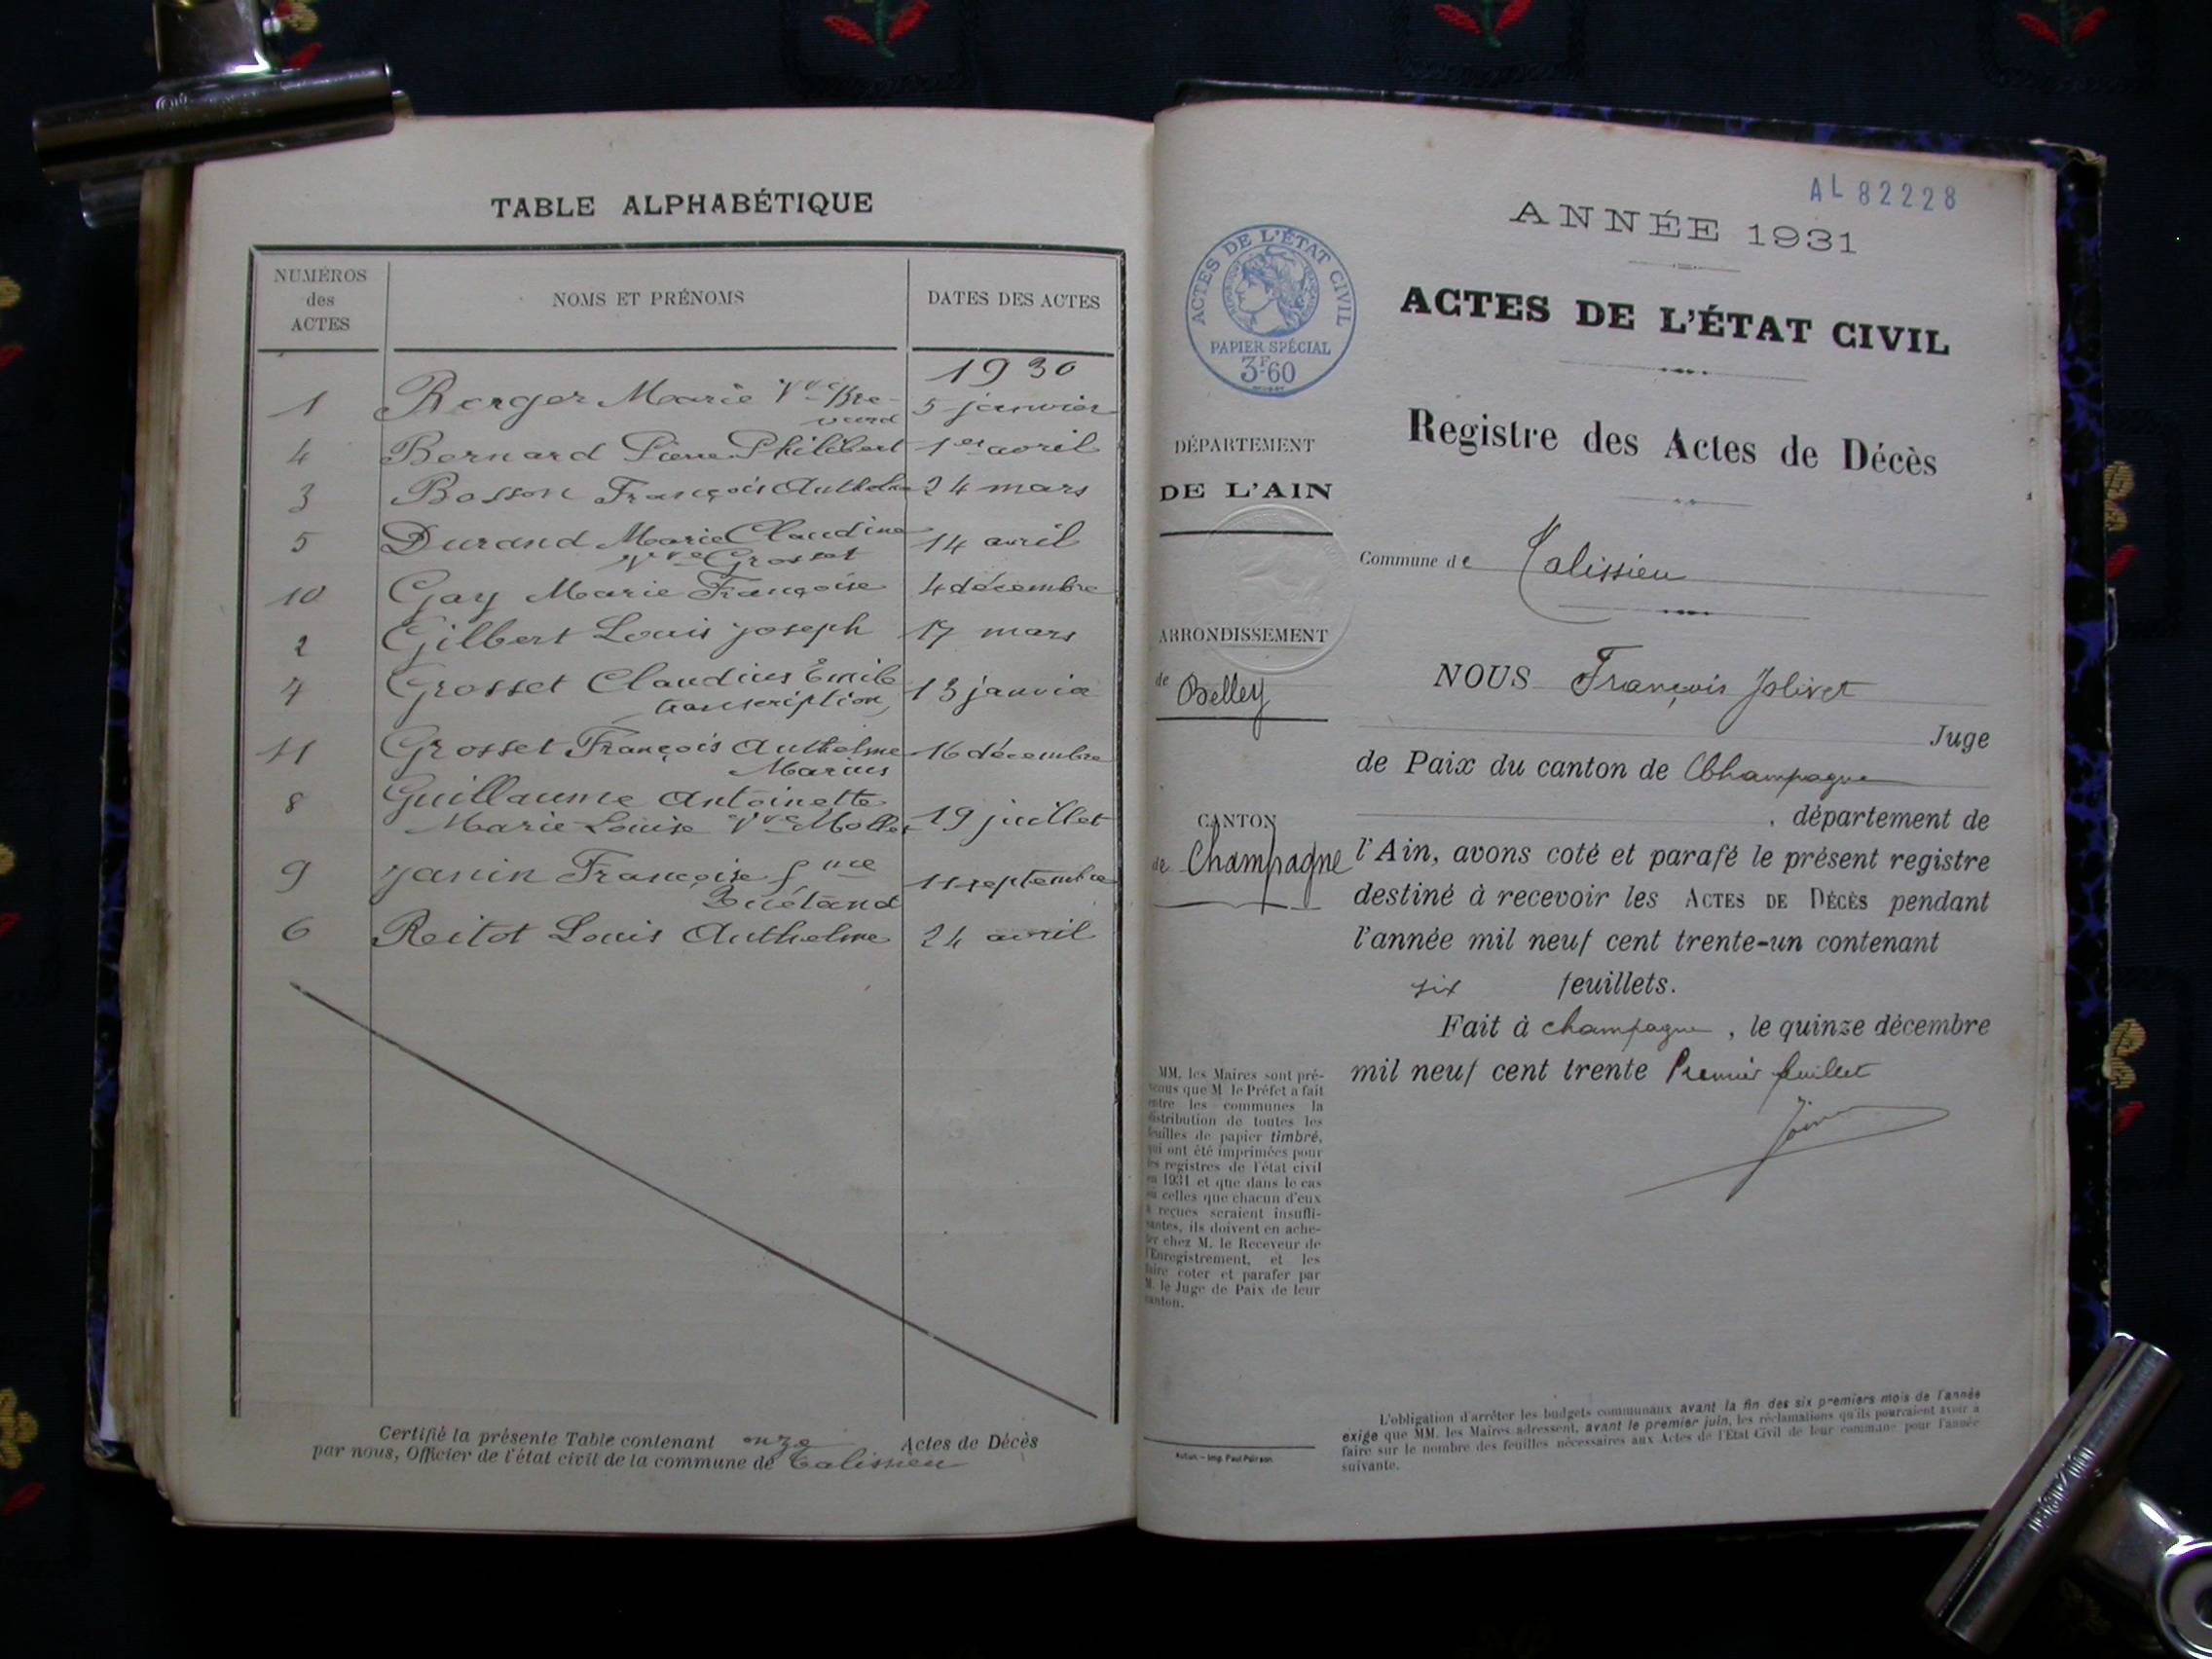 TABLE ALPHABÉTIQUE
NUMÉROS
des
ACTES
NOMS ET PRÉNOMS
DATES DES ACTES
1930
1 Berger Marie Vve Bre-
vard 5 janvier
4 Bernard Pierre Philibert 1er avril
3 Bosson François Anthelme 24 mars
5 Durand Marie Claudine 14 avril
Vve Grosset
10 Gay Marie Françoise 4 décembre
2 Gilbert Louis Joseph 17 mars
7 Grosset Claudius Emile 13 janvier
transcription
11 Grosset François Anthelme 16 décembre
Marius
8 Guillaume Antoinette
Marie Louise Vve Mollet 19 juillet
9 Janin Françoise fme 11 septembre
6 Reitot Louis Anthelme 24 avril
Certifié la présente Table contenant onze Actes de Décès
par nous, Officier de l'état civil de la commune de Talissieu
AL 82228
ANNÉE 1931
ACTES DE L'ÉTAT CIVIL
PAPIER SPÉCIAL
3F60
ACTES DE L'ÉTAT CIVIL
Registre des Actes de Décès
DÉPARTEMENT
DE L'AIN
Commune de Talissieu
ARRONDISSEMENT
de Belley
CANTON
de Champagne
NOUS François Jolivet
Juge
de Paix du canton de Champagne
, département de
l'Ain, avons coté et parafé le présent registre
destiné à recevoir les ACTES DE DÉCÈS pendant
l'année mil neuf cent trente-un contenant
six feuillets.
Fait à champagne, le quinze décembre
mil neuf cent trente Premier feuillet
MM. les Maires sont pré-
venus que M. le Préfet a fait
entre les communes la
distribution de toutes les
feuilles de papier timbré,
qui ont été imprimées pour
les registres de l'état civil
en 1931 et que dans le cas
où celles que chacun d'eux
a reçues seraient insuffi-
santes, ils doivent en ache-
ter chez M. le Receveur de
l'Enregistrement, et les
faire coter et parafer par
M. le Juge de Paix de leur
canton.
Autun. — Imp. Paul Poirson
L'obligation d'arrêter les budgets communaux avant la fin des six premiers mois de l'année
exige que MM. les Maires adressent, avant le premier juin, les réclamations qu'ils pourraient avoir à
faire sur le nombre des feuilles nécessaires aux Actes de l'Etat Civil de leur commune pour l'année
suivante.